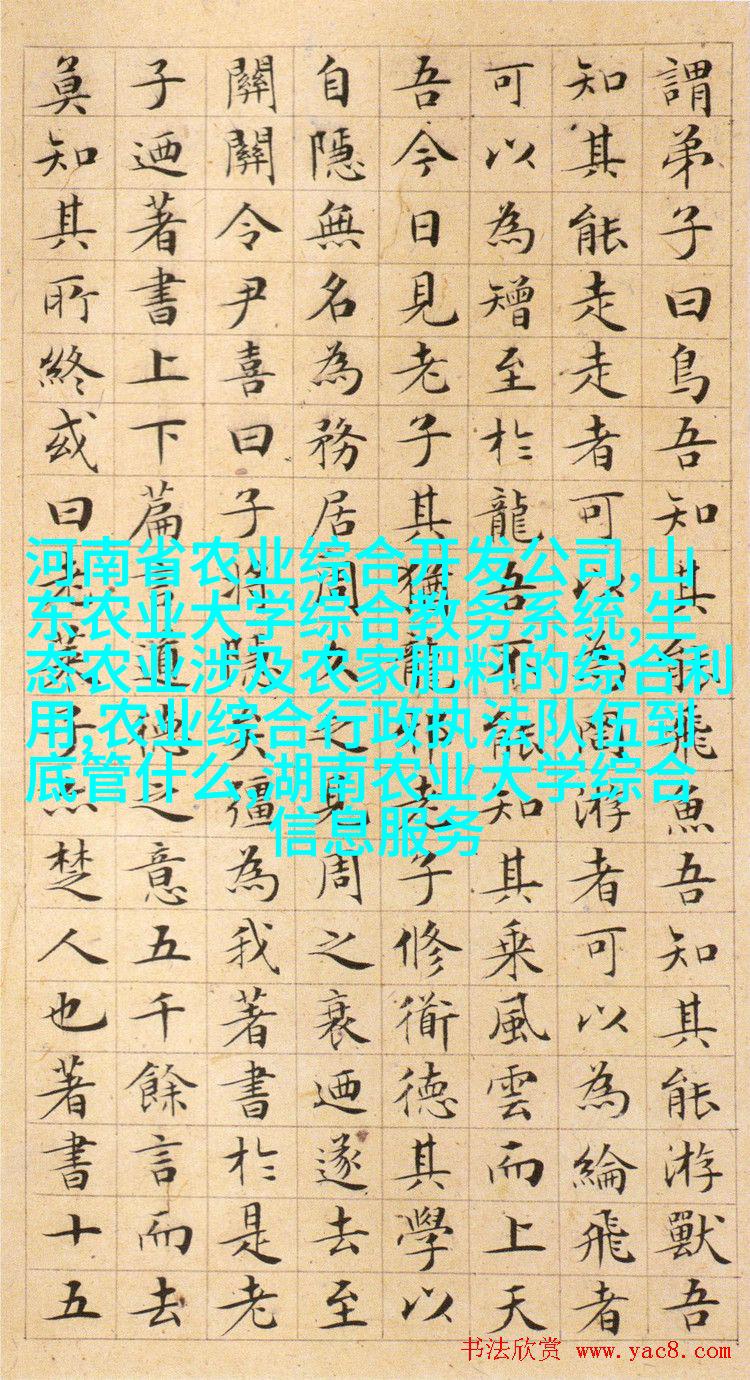 謂弟子曰鳥吾知其能飛魚吾知其能游獸吾
知其能走走者可以為罔游者可以為綸飛者
可以為矰至於龍吾不能知其乘風雲而上天
吾今日見老子其猶龍邪老子修衜德其學以
自隱無名為務居周久之見周之衰迺遂去至
關關令尹喜曰子將隱矣彊為我著書於是老
子迺著書上下篇言道德之意五千餘言而去
莫知其所終或曰老萊子亦楚人也著書十五
河南省农业综合开发公司,山
东农业大学综合教务系统,生
态农业涉及农家肥料的综合利
用,农业综合行政执法队伍到
底管什么,湖南农业大学综合
信息服务
书法欣赏 www.yac8.com